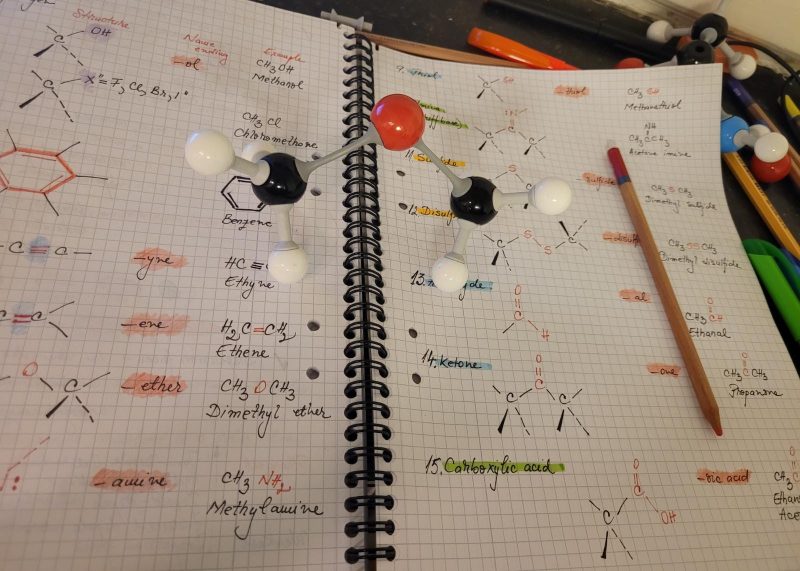 Structure
Name ending
Example
C OH
-ol
CH3OH
Methanol
C X" = F, Cl, Br, I"
CH3Cl
Chloromethane
Benzene
C≡C
-yne
HC≡
Ethyne
C=C
-ene
H2C=CH2
Ethene
O
C
-ether
CH3OCH3
Dimethyl ether
-amine
CH3NH2
Methylamine
9. Thiol
C SH
-thiol
CH3SH
Methanethiol
NH
CH3CCH3
Acetone imine
11. Sulfide
S
sulfide
CH3SCH3
Dimethyl sulfide
12. Disulf
C S S C
-disulf
CH3SSCH3
Dimethyl disulfide
13.
yde
O
C
H
-al
O
CH3CH
Ethanal
14. Ketone
O
C
C C
-one
O
CH3CCH3
Propanone
15. Carboxylic acid
O
C
C OH
-oic acid
O
CH3C
Ethan
Ace